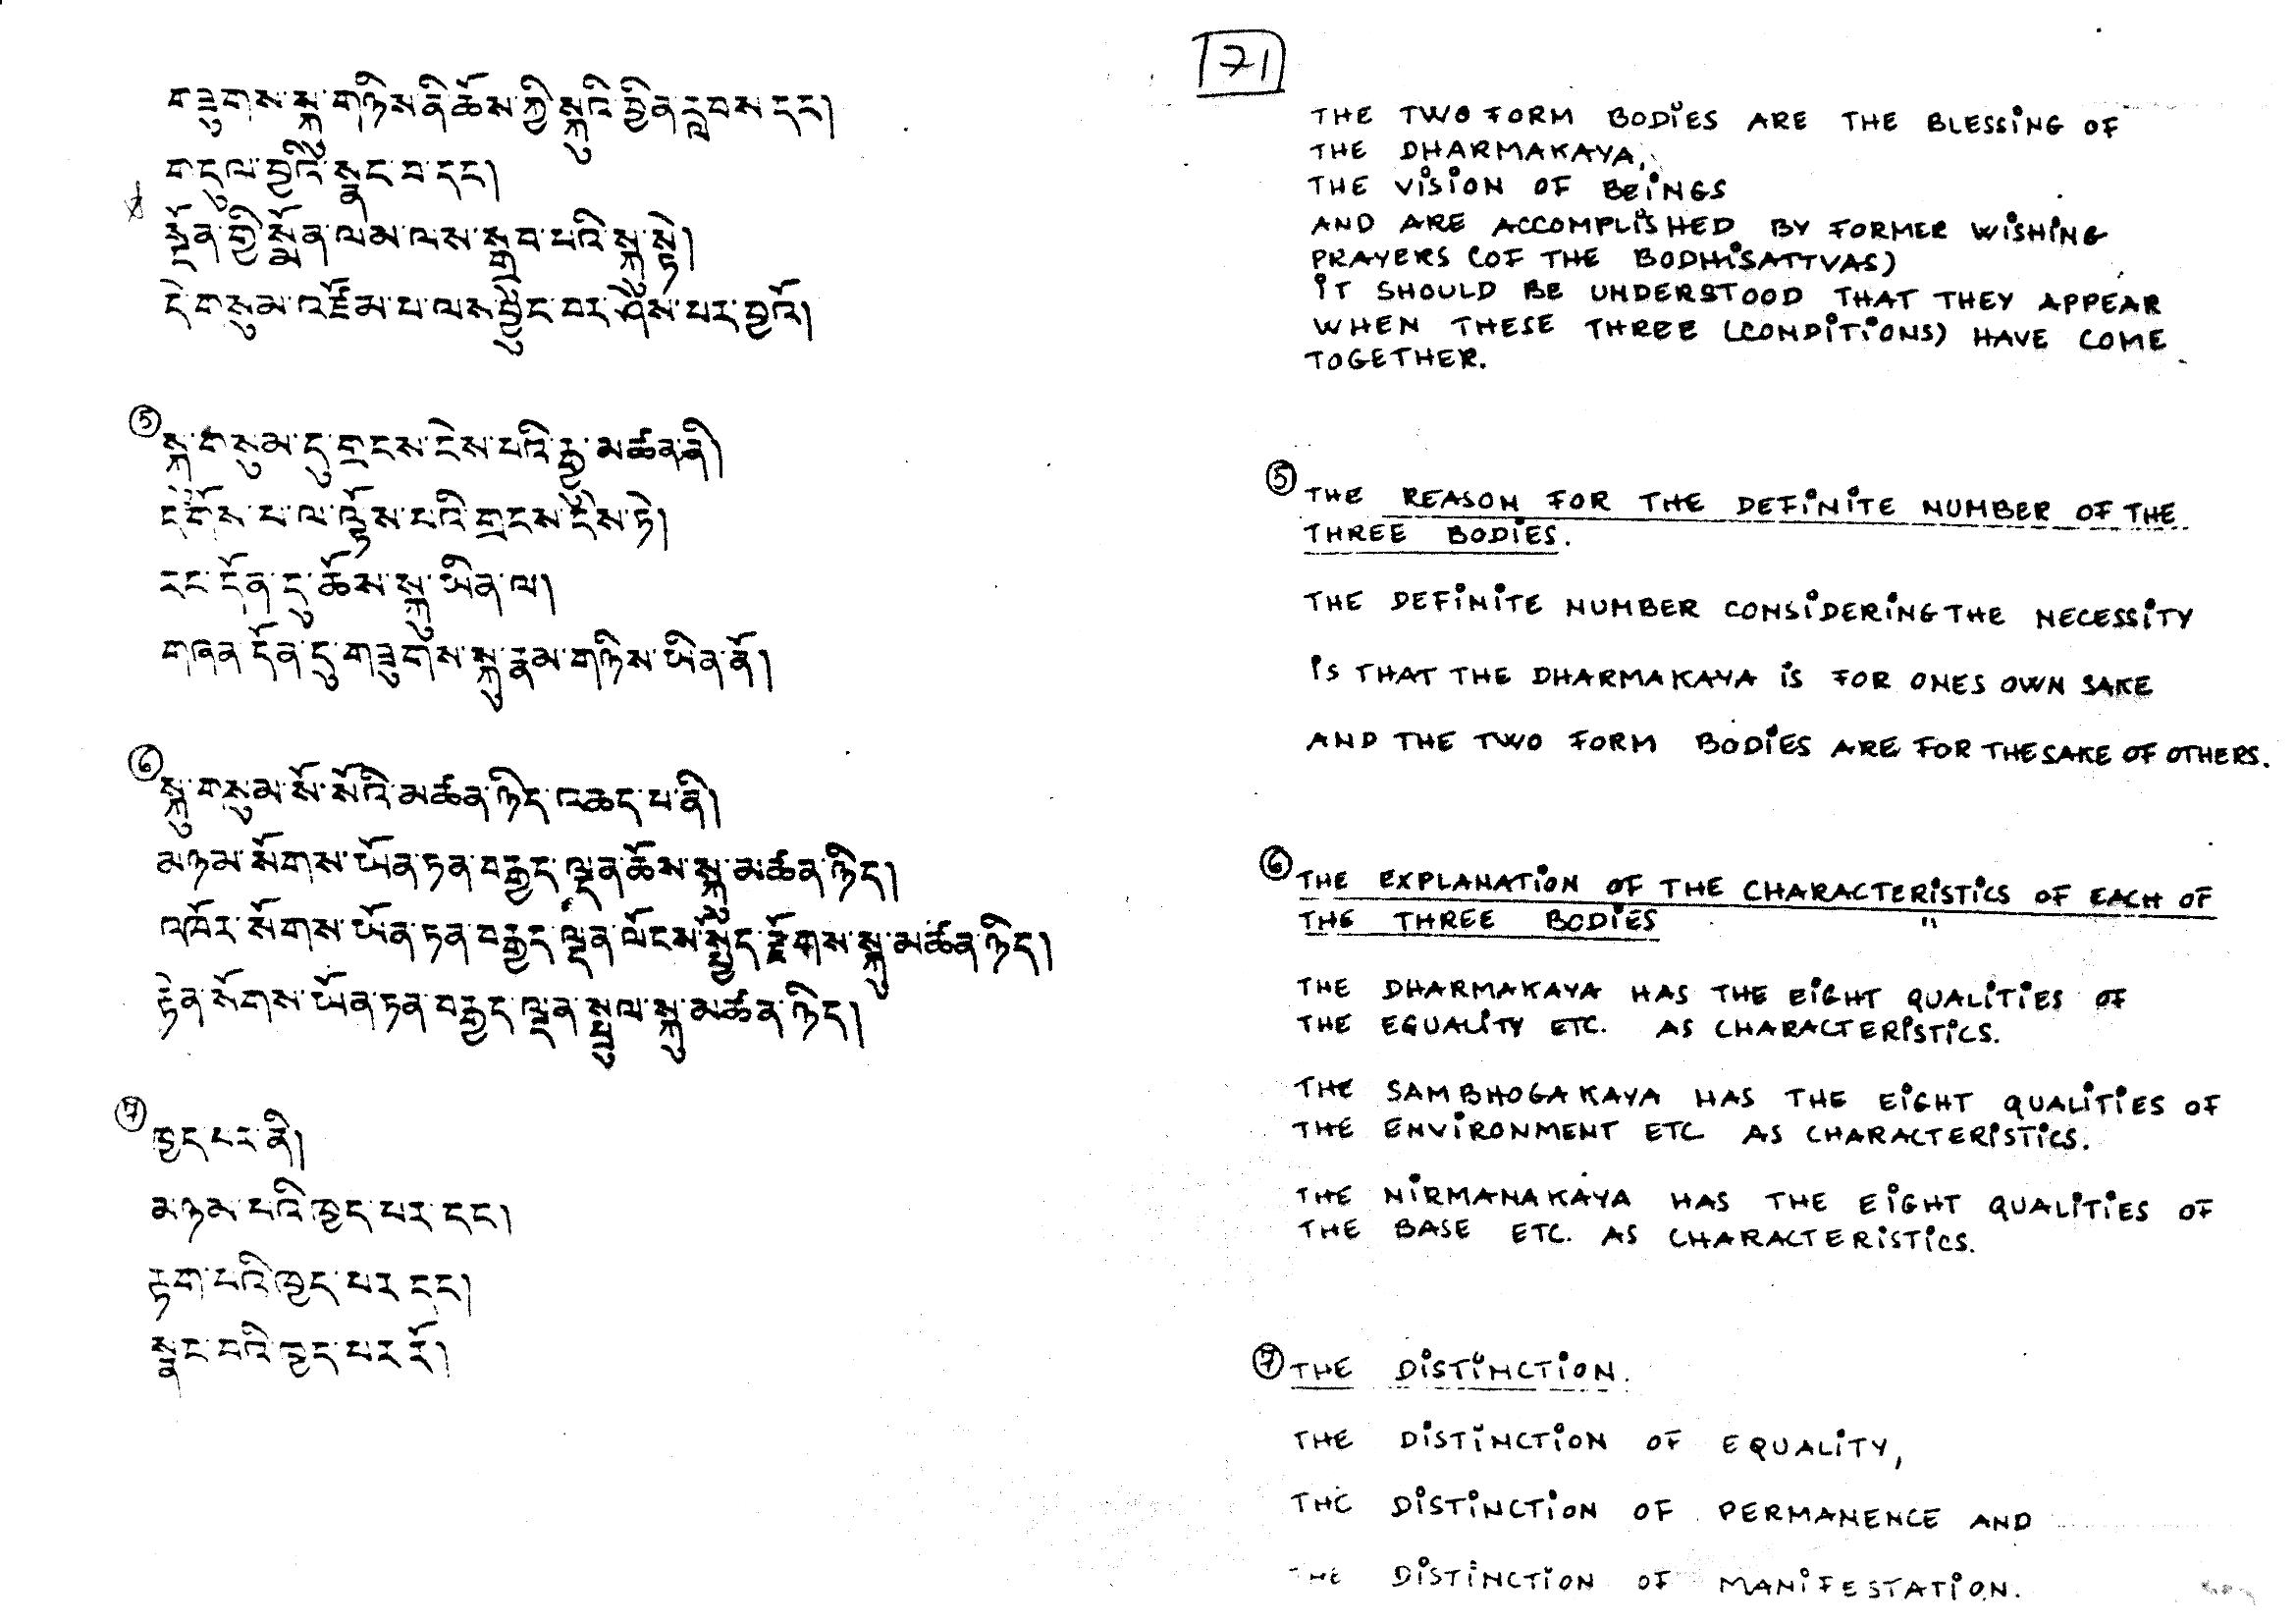 71
གཟུགས་སྐུ་གཉིས་ནི་ཆོས་ཀྱི་སྐུའི་བྱིན་རླབས་དང༌།
གདུལ་བྱའི་སྣང་བ་དང༌།
སྔོན་གྱི་སྨོན་ལམ་ལས་སྒྲུབ་པའི་སྐུ་སྟེ།
དེ་གསུམ་འཛོམ་པ་ལས་བྱུང་བར་ཤེས་པར་བྱའོ།
⑤
སྐུ་གསུམ་དུ་གྲངས་ངེས་པའི་རྒྱུ་མཚན་ནི།
དགོས་པ་ལ་ལྟོས་པའི་གྲངས་ངེས་ཏེ།
རང་དོན་དུ་ཆོས་སྐུ་ཡིན་ལ།
གཞན་དོན་དུ་གཟུགས་སྐུ་རྣམ་གཉིས་ཡིན་ནོ།
⑥
སྐུ་གསུམ་སོ་སོའི་མཚན་ཉིད་འཆད་པ་ནི།
མཉམ་སོགས་ཡོན་ཏན་བརྒྱད་ལྡན་ཆོས་སྐུ་མཚན་ཉིད།
འཁོར་སོགས་ཡོན་ཏན་བརྒྱད་ལྡན་ལོངས་སྤྱོད་རྫོགས་སྐུ་མཚན་ཉིད།
རྟེན་སོགས་ཡོན་ཏན་བརྒྱད་ལྡན་སྤྲུལ་སྐུ་མཚན་ཉིད།
⑦
ཁྱད་པར་ནི།
མཉམ་པའི་ཁྱད་པར་དང༌།
རྟག་པའི་ཁྱད་པར་དང༌།
སྣང་བའི་ཁྱད་པར་རོ།
THE TWO FORM BODIES ARE THE BLESSING OF
THE DHARMAKAYA,
THE VISION OF BEINGS
AND ARE ACCOMPLISHED BY FORMER WISHING
PRAYERS (OF THE BODHISATTVAS)
IT SHOULD BE UNDERSTOOD THAT THEY APPEAR
WHEN THESE THREE (CONDITIONS) HAVE COME
TOGETHER.
⑤ THE REASON FOR THE DEFINITE NUMBER OF THE
THREE BODIES.
THE DEFINITE NUMBER CONSIDERING THE NECESSITY
IS THAT THE DHARMAKAYA IS FOR ONES OWN SAKE
AND THE TWO FORM BODIES ARE FOR THE SAKE OF OTHERS.
⑥ THE EXPLANATION OF THE CHARACTERISTICS OF EACH OF
THE THREE BODIES "
THE DHARMAKAYA HAS THE EIGHT QUALITIES OF
THE EQUALITY ETC. AS CHARACTERISTICS.
THE SAMBHOGAKAYA HAS THE EIGHT QUALITIES OF
THE ENVIRONMENT ETC AS CHARACTERISTICS.
THE NIRMANAKAYA HAS THE EIGHT QUALITIES OF
THE BASE ETC. AS CHARACTERISTICS.
⑦ THE DISTINCTION.
THE DISTINCTION OF EQUALITY,
THE DISTINCTION OF PERMANENCE AND
THE DISTINCTION OF MANIFESTATION.